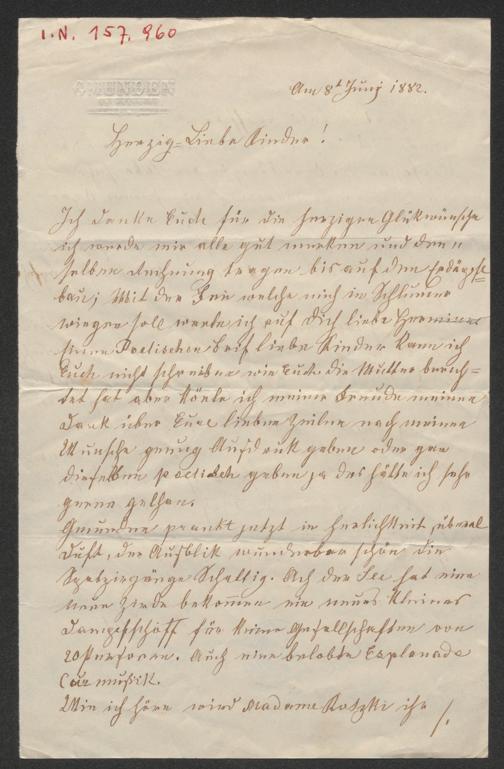 I.N. 157.960
GMUNDEN
Am 8t Juny 1882.
Herzig=Liebe Kinder!
Ich danke Euch für die herzigen Glükwünsche
ich werde mir alle gut merken und den=
selben Rechnung tragen bis auf den
bau; Mit der Fee welche mich in Schlummer
wiegen soll werde ich auf Dich liebe Hermine
keine Poetischen brif liebe Kinder kann ich
Euch nicht schreiben wie Euch die Mutter berich=
tet hat aber könte ich meiner Freude meinen
Dank über Eure lieben Zeilen nach meinen
Wunsche genug Ausdruk geben oder gar
dieselben poetisch geben ja das hätte ich sehr
gerne gethan.
Gmunden prankt jetzt in herlichkeit überal
Duft, der Aufblik wunderbar schön die
Spatziergänge Schattig. Ach der See hat eine
neue Zirde bekommen ein neues kleines
Dampfschiff für kleine Gesellschaften von
20 Personen. Auch eine belebte Esplanade
Curmusik.
Wie ich höre wird Madame ihr /.